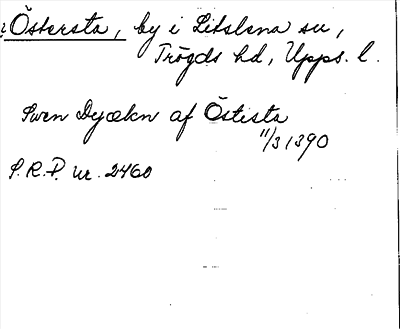 Östersta, by i Litslena sn,
Trögds hd, Upps. l.
Swen Dyækn af Östista
11/3 1390
S.R.P. nr. 2460